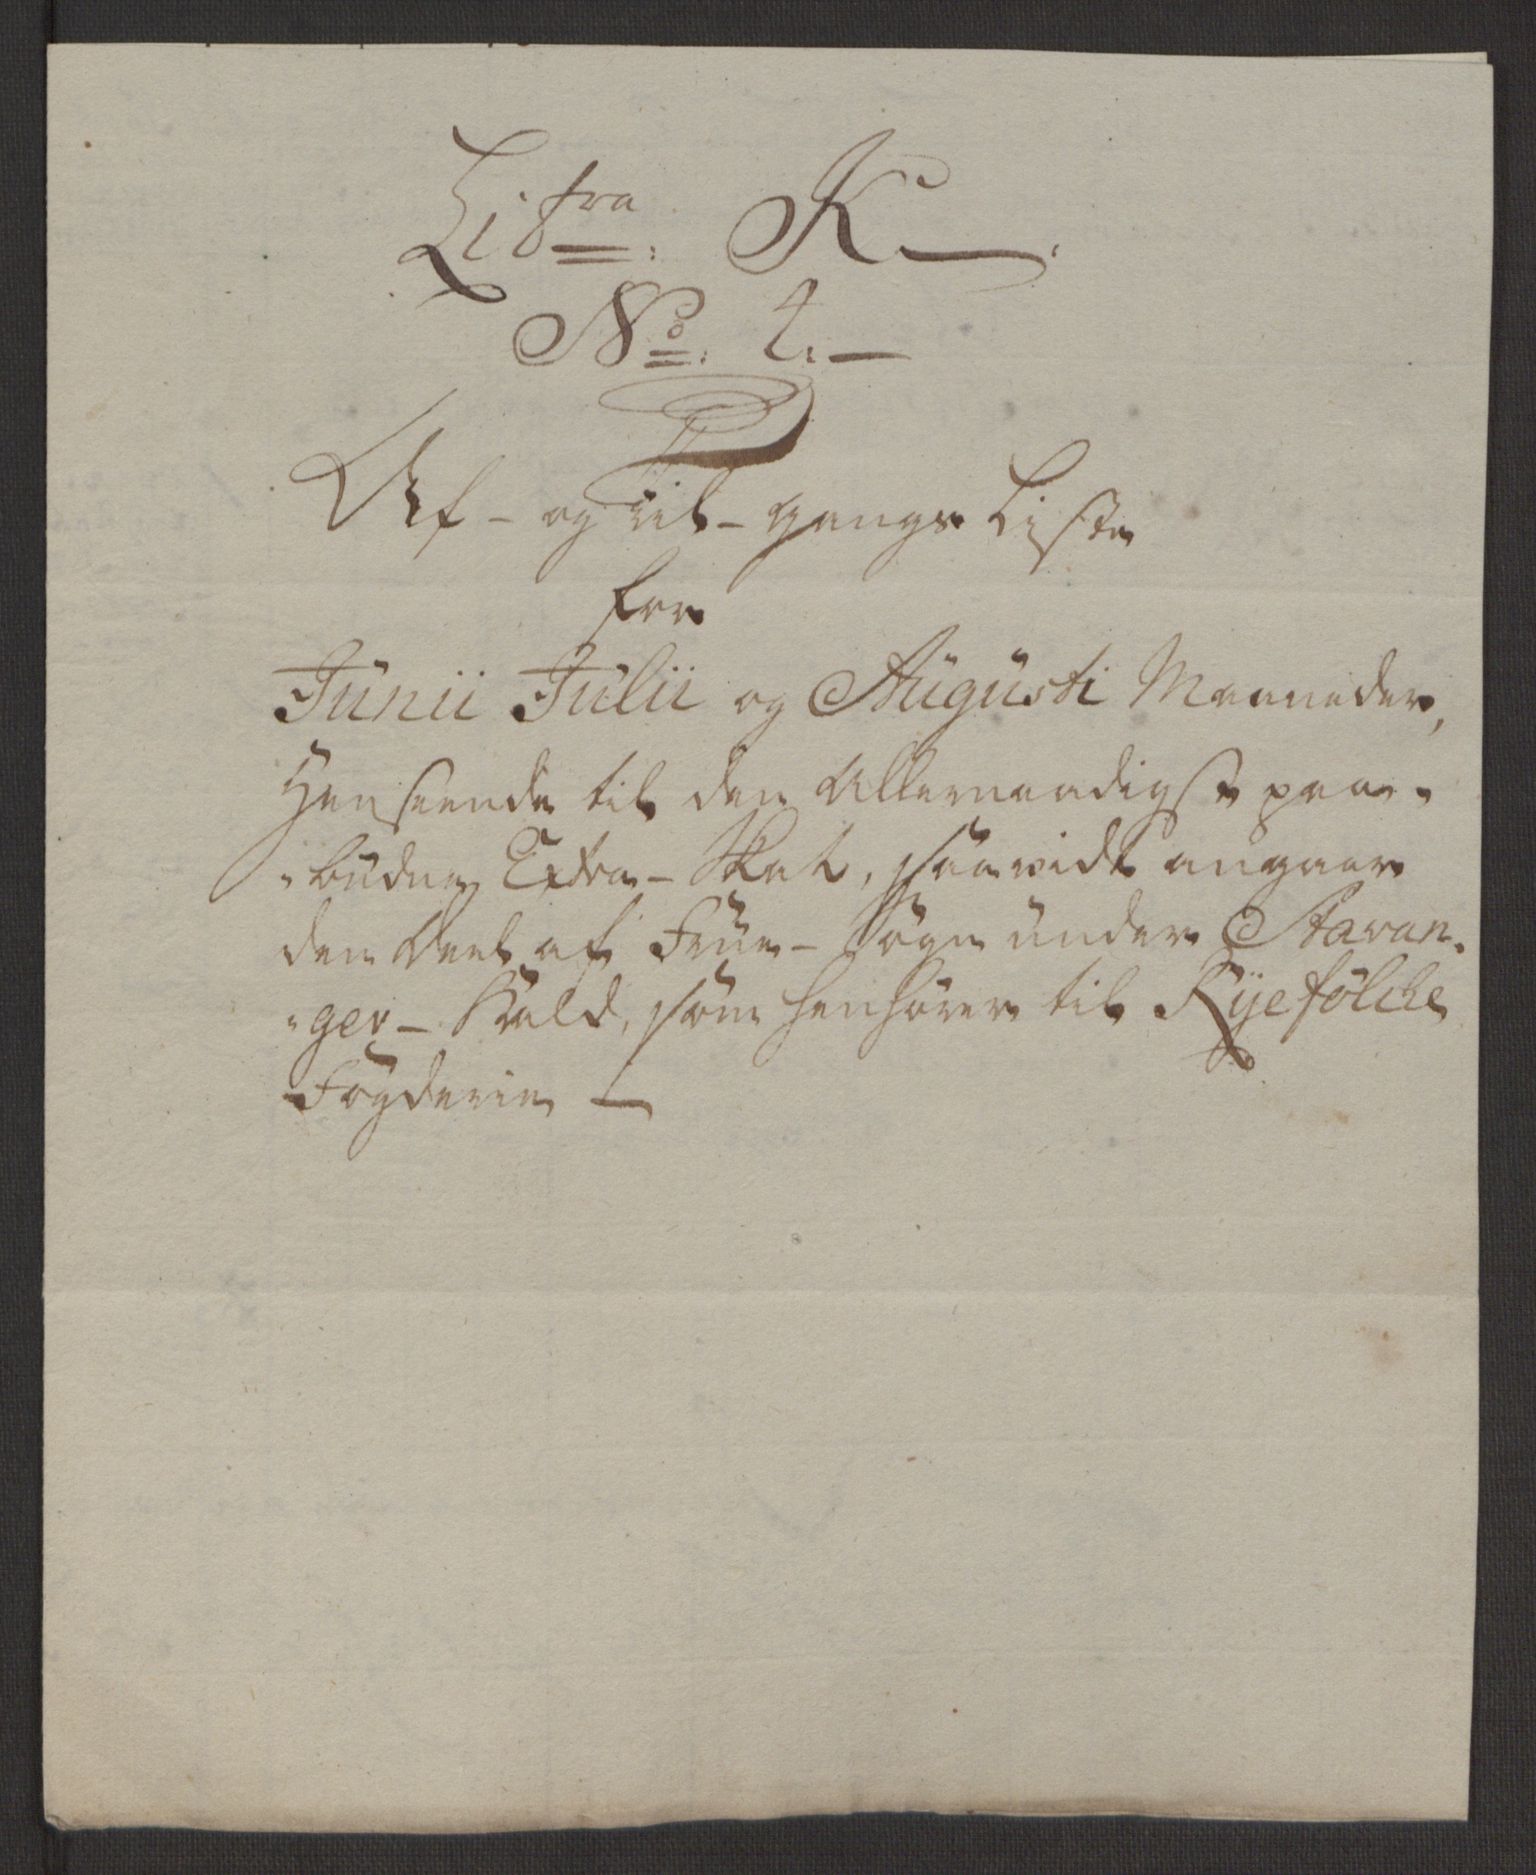 Litra K
No: 2.
Af- og til-gangs Liste
for
Junii Julii og Augusti Maaneder,
Henseende til den Allernaadigst paa-
budne Extra-Skat, saavidt angaar
den Deel af Frue-Sogn under Stavan-
ger-Kald, som henhører til Ryefølcke
Fogderie